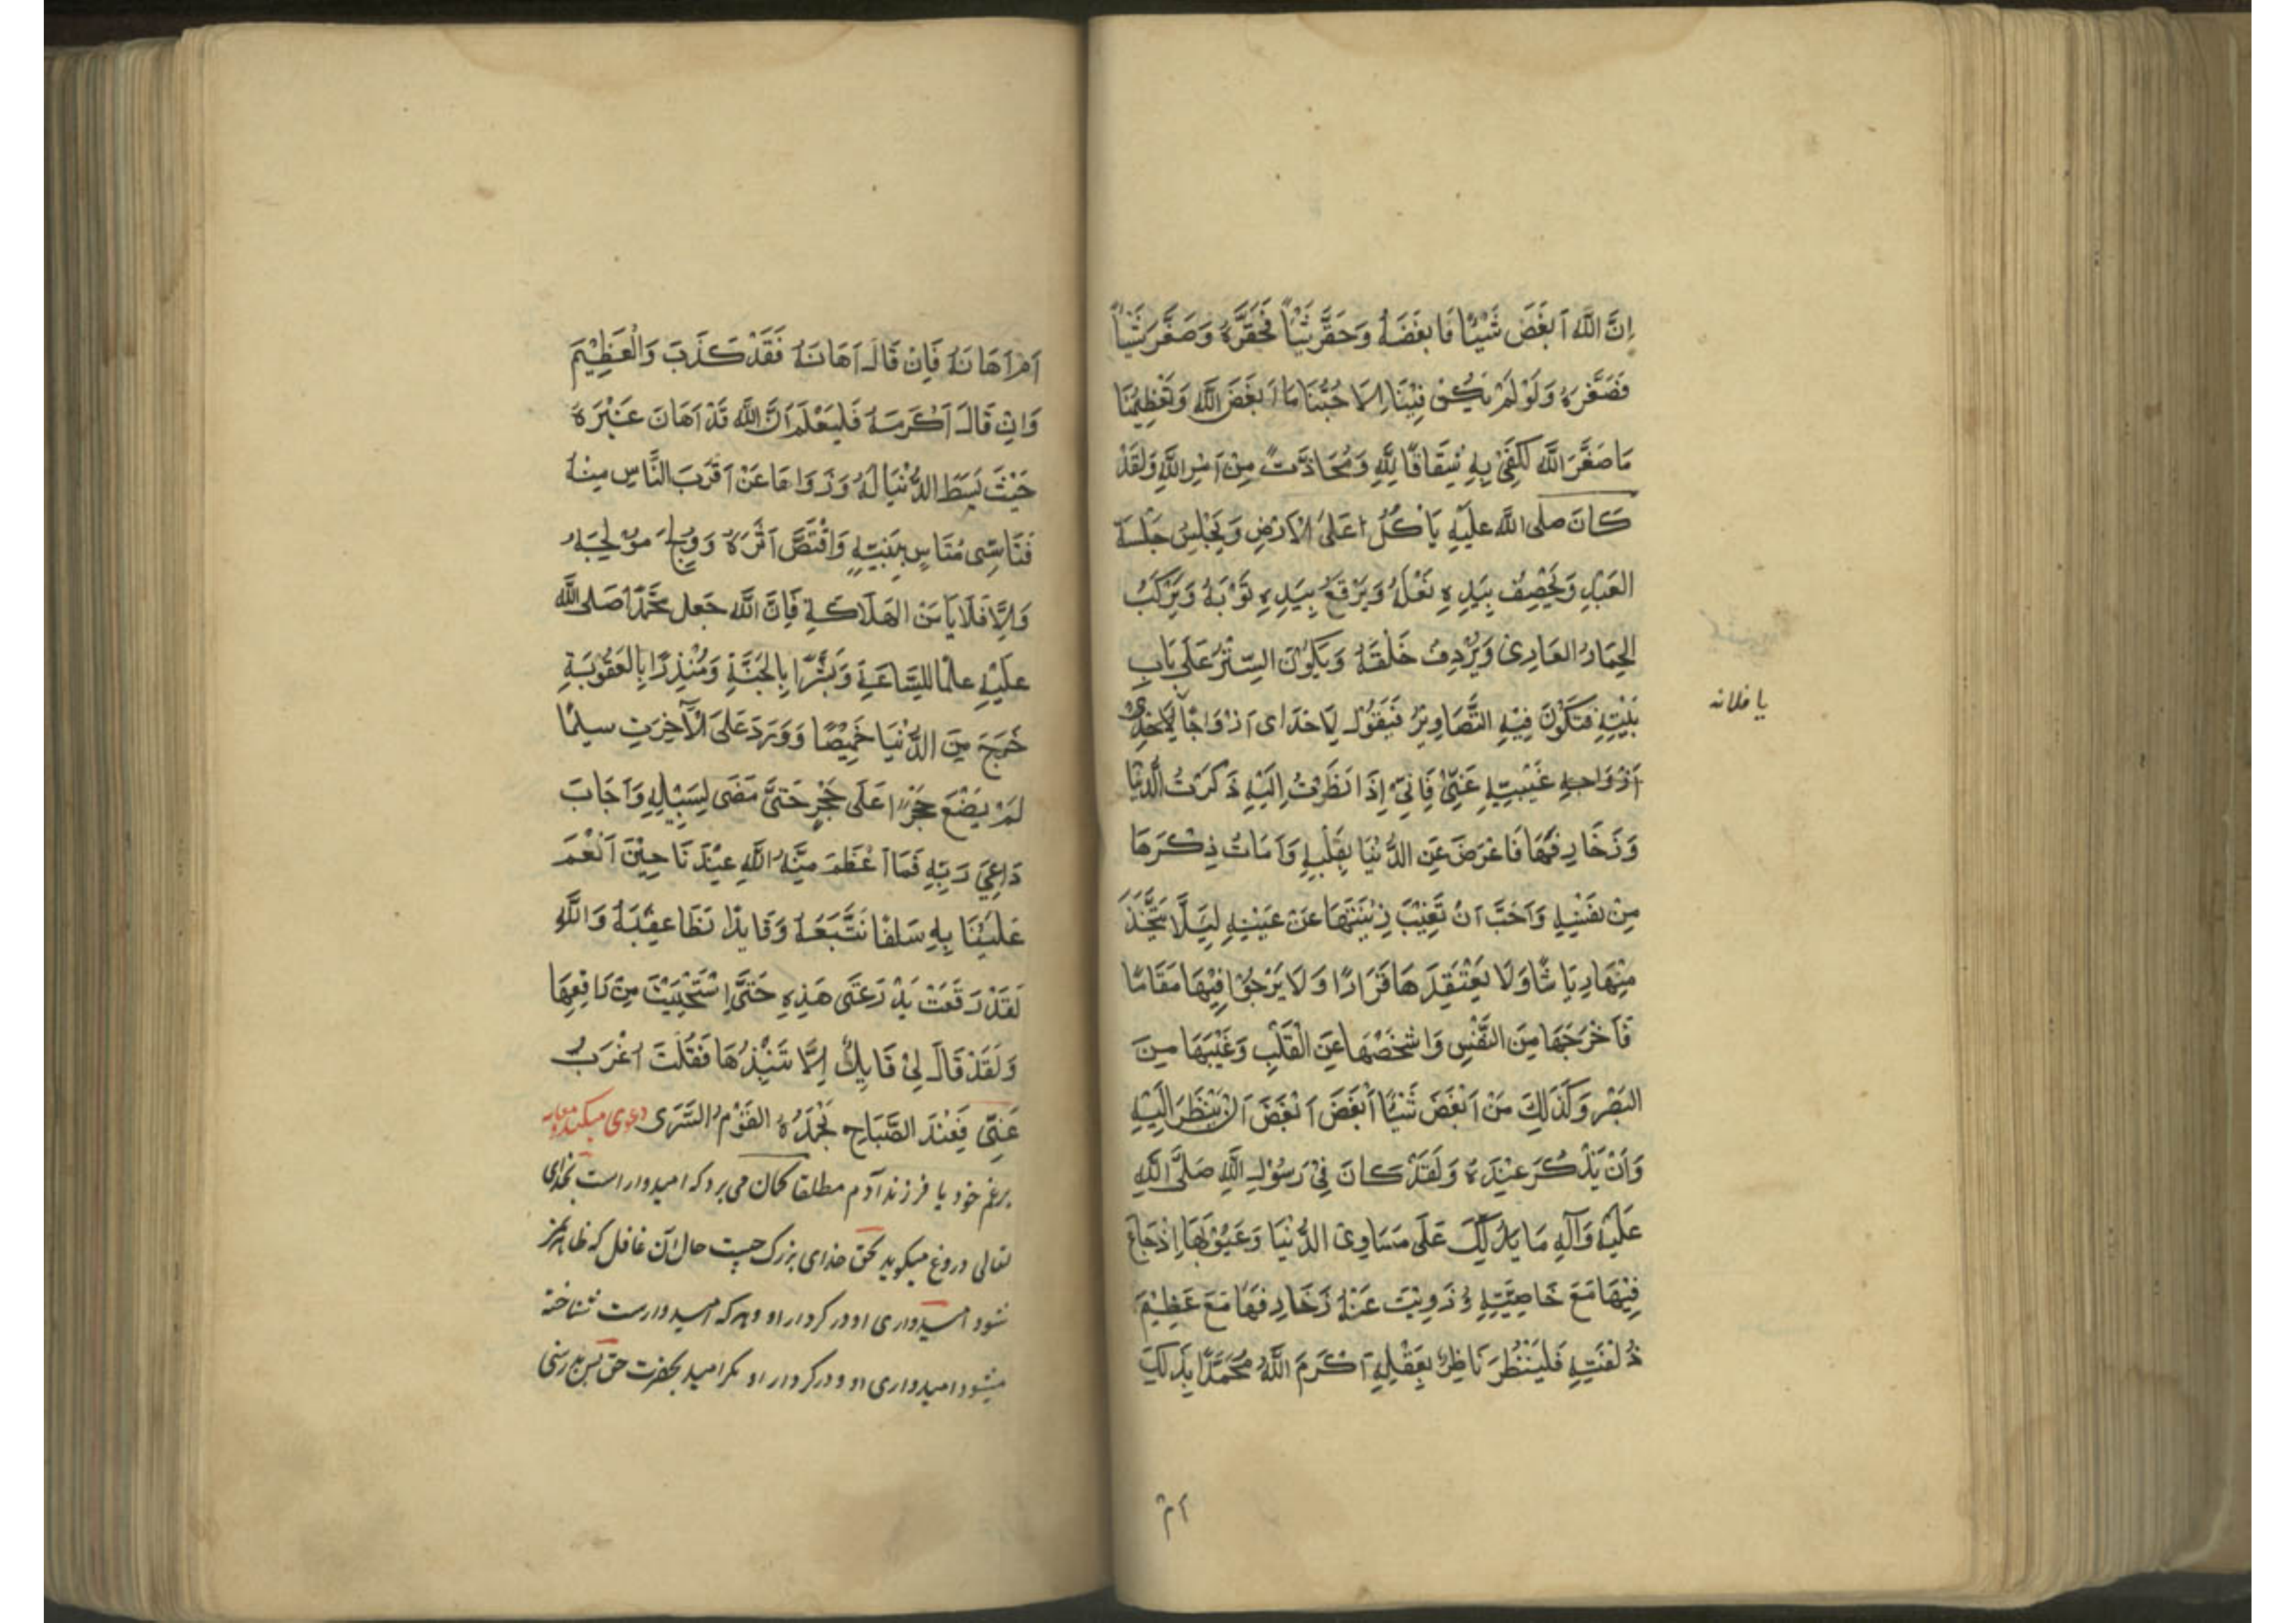 اِنَّ اللّٰه اَبغَضَ شَيْئًا فَابغَضَهُ وَحَقَّرَ شَيْئاً فَحَقَّرَهُ وَصَغَّرَ شَيْئاً
فَصَغَّرَهُ وَلَوْ لَمْ يَكُنْ فِيْنَا اِلَا حُبُّنَا مَا اَبغَضَ اللّٰه وَتَعْظِيْمُنَا
مَا صَغَّرَ اللّٰه لَكَفٰى بِهِ شِقَاقًا لِلّٰهِ وَمُحَاذَّتً مِنْ اَمْرِ اللّٰهِ وَلَقَدْ
كَانَ صلى اللّٰه عليْهِ يَاْكُلُ اعَلىَ الْاَرْضِ وَيَجْلِسُ جَلْسَةَ
العَبْدِ وَيَخْصِفُ بِيَدِهِ نَعْلَهُ وَيَرْقَعُ بِيَدِهِ ثَوْبَهُ وَيَرْكَبُ
الحِمَارُ العَارِىَ وَيُرْدِفُ خَلْقَهُ وَيَكُوْنَ السِّتْرُ عَلَى بَابِ
بَيْتِهِ فَتَكُوْنَ فِيْهِ التَّصَاوِيْرُ فَيَقُوْلُ
يا فلانه
اَزْوَاجِهِ غَيْبِيْهِ عَنِّىْ فَاِنِّىْ اِذَا نَظَرْتُ اِلَيْهِ ذَكَرْتُ الدُّنْيَا
وَزَخَارِفَهَا فَاعْرَضَ عَنِ الدُّنْيَا بِقَلْبِهِ وَاَمَاتُ ذِكْرَهَا
مِنْ نَفْسِهِ وَاَحَبَّ اَنْ تَغِيْبَ زِيْنَتَهَا عَنْ عَيْنِهِ لِيَلَّا يَتَّخِذَ
مِنْهَا رِيَاشًا وَلَا يَعْتَقِدَهَا قَرَارًا وَلَا يَرْجُوْا فِيْهَا مَقَامًا
فَاَخْرَجَهَا مِنَ النَّفْسِ وَاشْخَصَهَا عَنِ الْقَلْبِ وَغَيَّبَهَا مِنَ
البَصْرِ وَكَذَلِكَ مَنْ اَبْغَضَ شَيْئًا اَبْغَضَ اَبْغَضَ اَنْ يَنْظُرَ اِلَيْهِ
وَاَنْ يَذْكُرَ عِنْدَهُ وَلَقَدْ كَانَ فِىْ رَسُوْلِ اللّٰهِ صَلَّى اللّٰهِ
عَلَيْهِ وَآلِهِ مَا يَدُلُّكَ عَلَى مَسَاوِىْ الدُّنْيَا وَعَيُوْبَهَا اِذْجَاعَ
فِيْهَا مَعَ خَاصِيَّتِهِ وَزُوِيَتْ عَنْهُ زَخَارِفَهَا مَعَ عَظِيْمَ
زُلْفَتِهِ فَلْيَنْظُرَ نَاظِرٌ بِعَقْلِهِ اَكْرَمَ اللّٰهُ مُحَمَّدًا بِذَلِكَ
ام
اَمْ اَهَانَهُ فَاِنْ قَالَ اَهَانَهُ فَقَدْ كَذَبَ وَالْعَظِيْمَ
وَانْ قَالَ اَكْرَمَهُ فَليَعْلَمْ اَنَّ اللّٰه قَدْ اَهَانَ غَيْرَهُ
حَيْثَ بَسَطَ الدُّنْيَا لَهُ وَزَوَاهَا عَنْ اَقْرَبَ النَّاسِ مِنْهُ
فَتَاسّٰى مُتَاسٍ بِنَبِيِّهِ وَاقْتَصَّ اَثَرَهُ وَوَلِجَ مَوْلِجَهُ
وَاِلَّا فَلَا يَاَمَنْ الهَلَاكَةِ فَاِنَّ اللّٰه جَعل مُحَمَّدًا صَلى اللّٰه
عليْهِ علمًا للِسَّاعَةِ وَمُبَشِّرًا بِالجَنَّةِ وَمُنْذِرًا بِالعَقُوْبَةِ
خَرَجَ مِنَ الدُّنْيَا خَمِيْصًا وَوَرَدَ عَلىَ الْآخِرَتِ سليمًا
لَمْ يَضَعْ حَجَرًا عَلَى حَجَرٍ حَتىَّ مَضَى لِسَبِيْلِهِ وَاَجَابَ
دَاعِىَ رَبِّهِ فَمَا اَعْظَمَ مِنَّةُ اللّٰهِ عِنْدَنَا حِيْنَ اَنْعَمَ
عَلَيْنَا بِهِ سَلَفًا نَتَّبَعَهُ وَقَايدًا نَطَا عقِبَهُ وَاللّٰهِ
لَقَدْ رَقَعَتْ مِدْرَعَتَى هَذِهِ حَتَّى اسْتَحْيَيْتَ مِنْ رَاقِعِهَا
وَلَقَدْ قَالَ لِىْ قَايِلٌ اَلَا تَنْبِذُهَا فَقُلْتَ اُغْرَبْ
عَنِّى فَعِنْدَ الصَّبَاحِ يَحْمَدُهُ القَوْمُ السَّرَى دعوى ميكند
بزعم خود يا فرزند آدم مطلقا كمان مى برد كه اميدوار است بخداى
تعالى دروغ ميكويد بحق خداى بزرك چيست حال آن غافل كه ظاهر نمز
نشود اميدوارى او در كردار او وهر كه اميدوارست شناخته
ميشود اميدوارى او در كردار او مكر اميد بحضرت حق پس بدرستى